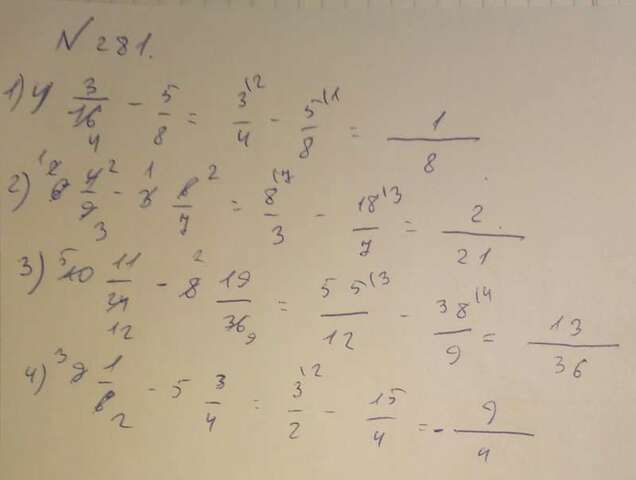 № 281.
1) 4 3/16 4 - 5/8 = 3\2/4 - 5\1/8 = 1/8
2) 6 2 4 2/9 3 - 3 1 6 2/7 = 8\7/3 - 18\3/7 = 2/21
3) 5 10 11/24 12 - 8 2 19/36 9 = 55\3/12 - 38\4/9 = 13/36
4) 3 9 1/6 2 - 5 3/4 = 3\2/2 - 15/4 = - 9/4